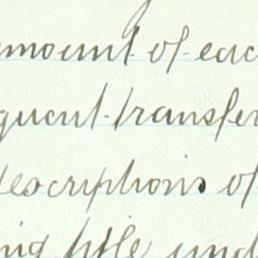 amount of eac
quent transfer
descriptions of
ing title und